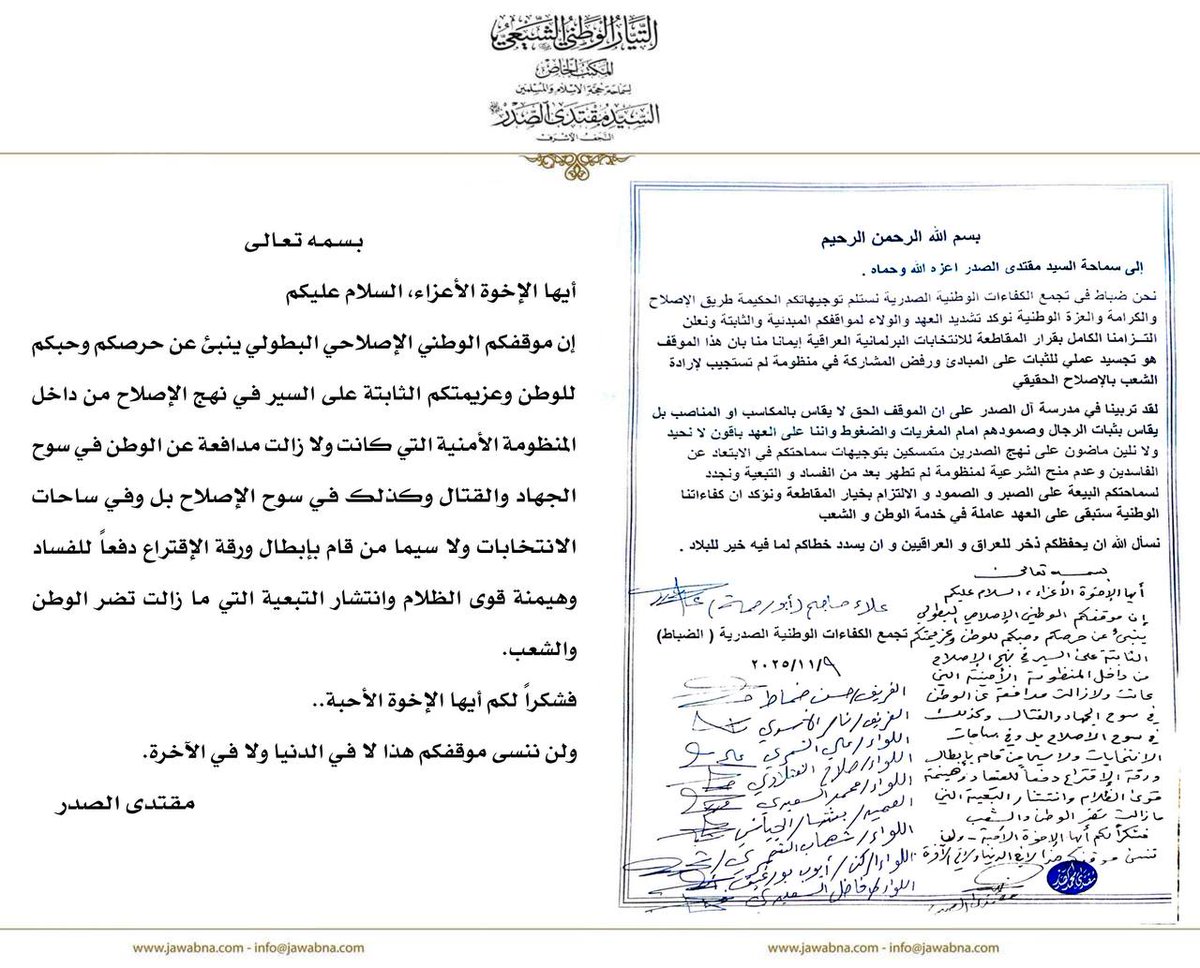 التيار الوطني الشيعي
المكتب الخاص
لسماحة حجة الاسلام والمسلمين
السيد مقتدى الصدر
النجف الأشرف
بسم الله الرحمن الرحيم
إلى سماحة السيد مقتدى الصدر اعزه الله وحماه .
نحن ضباط في تجمع الكفاءات الوطنية الصدرية نستلم توجيهاتكم الحكيمة طريق الإصلاح
والكرامة والعزة الوطنية نوكد تشديد العهد والولاء لمواقفكم المبدئية والثابتة ونعلن
التزامنا الكامل بقرار المقاطعة للانتخابات البرلمانية العراقية إيمانا منا بان هذا الموقف
هو تجسيد عملي للثبات على المبادئ ورفض المشاركة في منظومة لم تستجيب لإرادة
الشعب بالإصلاح الحقيقي
لقد تربينا في مدرسة آل الصدر على ان الموقف الحق لا يقاس بالمكاسب او المناصب بل
يقاس بثبات الرجال وصمودهم امام المغريات والضغوط واننا على العهد باقون لا نحيد
ولا نلين ماضون على نهج الصدرين متمسكين بتوجيهات سماحتكم في الابتعاد عن
الفاسدين وعدم منح الشرعية لمنظومة لم تطهر بعد من الفساد و التبعية ونجدد
لسماحتكم البيعة على الصبر و الصمود و الالتزام بخيار المقاطعة ونؤكد ان كفاءاتنا
الوطنية ستبقى على العهد عاملة في خدمة الوطن و الشعب
نسأل الله ان يحفظكم ذخر للعراق و العراقيين و ان يسدد خطاكم لما فيه خير للبلاد .
بسمه تعالى
أيها الإخوة الأعزاء، السلام عليكم
إن موقفكم الوطني الإصلاحي البطولي
ينبئ عن حرصكم وحبكم للوطن وعزيمتكم
الثابتة على السير في نهج الإصلاح
من داخل المنظومة الأمنية التي
كانت ولازالت مدافعة عن الوطن
في سوح الجهاد والقتال وكذلك
في سوح الإصلاح بل وفي ساحات
الانتخابات ولا سيما من قام بإبطال
ورقة الإقتراع دفعاً للفساد وهيمنة
قوى الظلام وانتشار التبعية التي
مازالت تضر الوطن والشعب
فشكراً لكم أيها الإخوة الأحبة - ولن
ننسى موقفكم هذا لا في الدنيا ولا في الآخرة
مقتدى الصدر
تجمع الكفاءات الوطنية الصدرية ( الضباط)
٢٠٢٥/١١/٩
الفريق/ حسن
اللواء/ علي
اللواء/ صلاح
اللواء/ محمد السعيدي
العميد/
اللواء/ شهاب
اللواء الركن/ أيوب
اللواء/ فاضل السعيدي
بسمه تعالى
أيها الإخوة الأعزاء، السلام عليكم
إن موقفكم الوطني الإصلاحي البطولي ينبئ عن حرصكم وحبكم
للوطن وعزيمتكم الثابتة على السير في نهج الإصلاح من داخل
المنظومة الأمنية التي كانت ولا زالت مدافعة عن الوطن في سوح
الجهاد والقتال وكذلك في سوح الإصلاح بل وفي ساحات
الانتخابات ولا سيما من قام بإبطال ورقة الإقتراع دفعاً للفساد
وهيمنة قوى الظلام وانتشار التبعية التي ما زالت تضر الوطن
والشعب.
فشكراً لكم أيها الإخوة الأحبة..
ولن ننسى موقفكم هذا لا في الدنيا ولا في الآخرة.
مقتدى الصدر
www.jawabna.com - info@jawabna.com
www.jawabna.com - info@jawabna.com